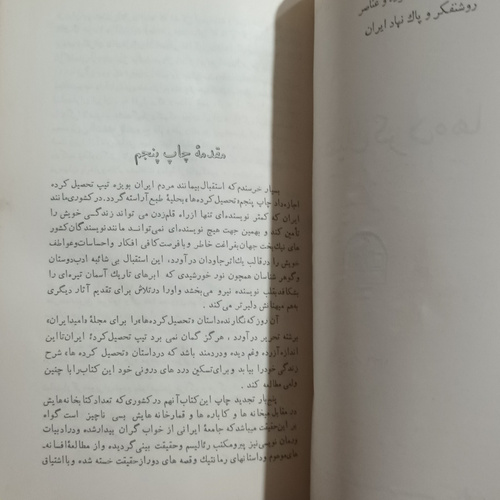 روشنفکر و پاك نهاد ایران
مقدمهٔ چاپ پنجم
بسیار خرسندم که استقبال بیمانند مردم ایران بویژه تیپ تحصیل کرده
اجازه داد چاپ پنجم «تحصیل کرده‌ها» بحلیهٔ طبع آراسته گردد. در کشوری مانند
ایران که کمتر نویسنده‌ای تنها ازراه قلم‌زدن می تواند زندگسی خویش را
تأمین کند و بهمین جهت هیچ نویسنده‌ای نمی‌توانـد مانند نویسندگان کشور
های نیکبخت جهان بفراغت خاطر وبافرصت کافی افکار واحساسات وعواطف
خویش را درقالب یك اثر جاودان درآورد، این استقبال بی شائبه ادب‌دوستان
وگوهر شناسان همچون نور خورشیدی که ابرهای تاریك آسمان تیره‌ای را
بشکافد بقلب نویسنده نیرو می‌بخشد واورا درتلاش برای تقدیم آثار دیگری
بـه هم میهنانش دلیرتر می‌کند.
آن روز که نگارنده داستان «تحصیل کرده‌ها» را برای مجلهٔ «امید ایران»
برشته تحریر درآورد، هرگز گمان نمی برد تیپ تحصیل کردهٔ ایران تا این
اندازه آزرده وغم دیده ودردمند باشد که درداستان «تحصیل کرده ها» شرح
زندگی خودرا بیابد و برای تسکین درد های درونی خود این کتاب را با چنین
مطالعه کند.
پنج‌بار تجدید چاپ این کتاب آنهم درکشوری که تعداد کتابخانه هایش
در مقابل میخانه ها و کاباره ها و قمارخانه هایش بسی ناچیز است گواه
بر این حقیقت میباشد که جامعهٔ ایرانی از خواب گران بیدار شده ودرادبیات
ورمان نویسی نیز پیرو مکتب رئالیسم وحقیقت بینی گردیده و از مطالعهٔ افسانه‌
های موهوم وداستانهای رمانتیك وقصه های دور از حقیقت خسته شده و با اشتیاق